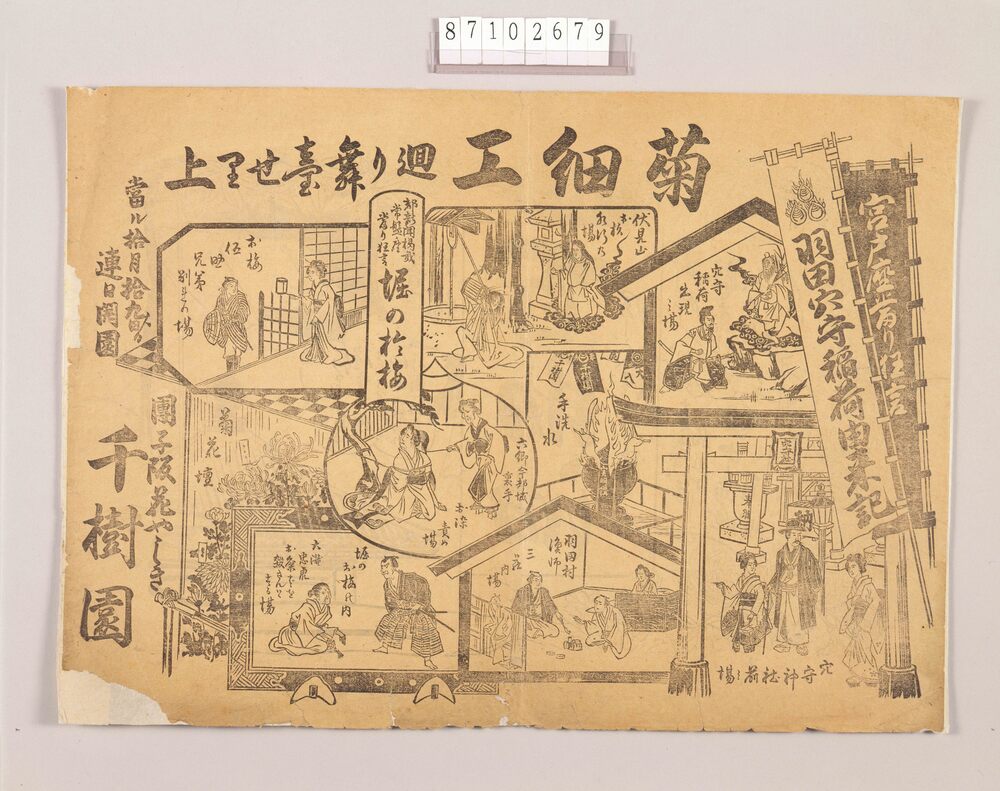 87102679
菊細工
廻り舞臺せり上
宮戸座當り狂言
羽田穴守稲荷由来記
穴守
稲荷
出現
之場
伏見山
場
都新聞掲載
常盤座
當り狂言
堀の於梅
お梅
伍助
兄弟
別れの場
當ル拾月拾九日より
連日開園
手洗
水
六郷今部城
裏手
お染
責め
場
菊
花
壇
團子阪花やしき
千樹園
羽田村
漁師
三荘
内
場
堀の
お梅の内
大濱
忠虎
お染を
殺さんと
する場
穴守神社前之場